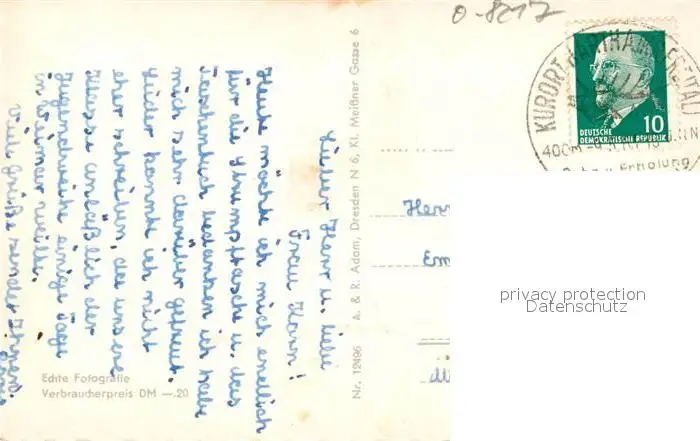 o-8217
KURORT HARTHA
400M
Erholung
DEUTSCHE
DEMOKRATISCHE REPUBLIK
10
Lieber Herr u. liebe
Frau Horn!
Heute möchte ich mich endlich
für die Strumpftasche u. das
Taschentuch bedanken ich habe
mich sehr darüber gefreut.
Leider konnte ich nicht
eher schreiben, da unsere
Klasse anläßlich der
Jugendweihe einige Tage
in Weimar weilte.
Viele Grüße sendet Ihnen
Nr. 12496 A. & R. Adam, Dresden N 6, Kl. Meißner Gasse 6
Echte Fotografie
Verbraucherpreis DM —.20
Herr
Em
privacy protection
Datenschutz